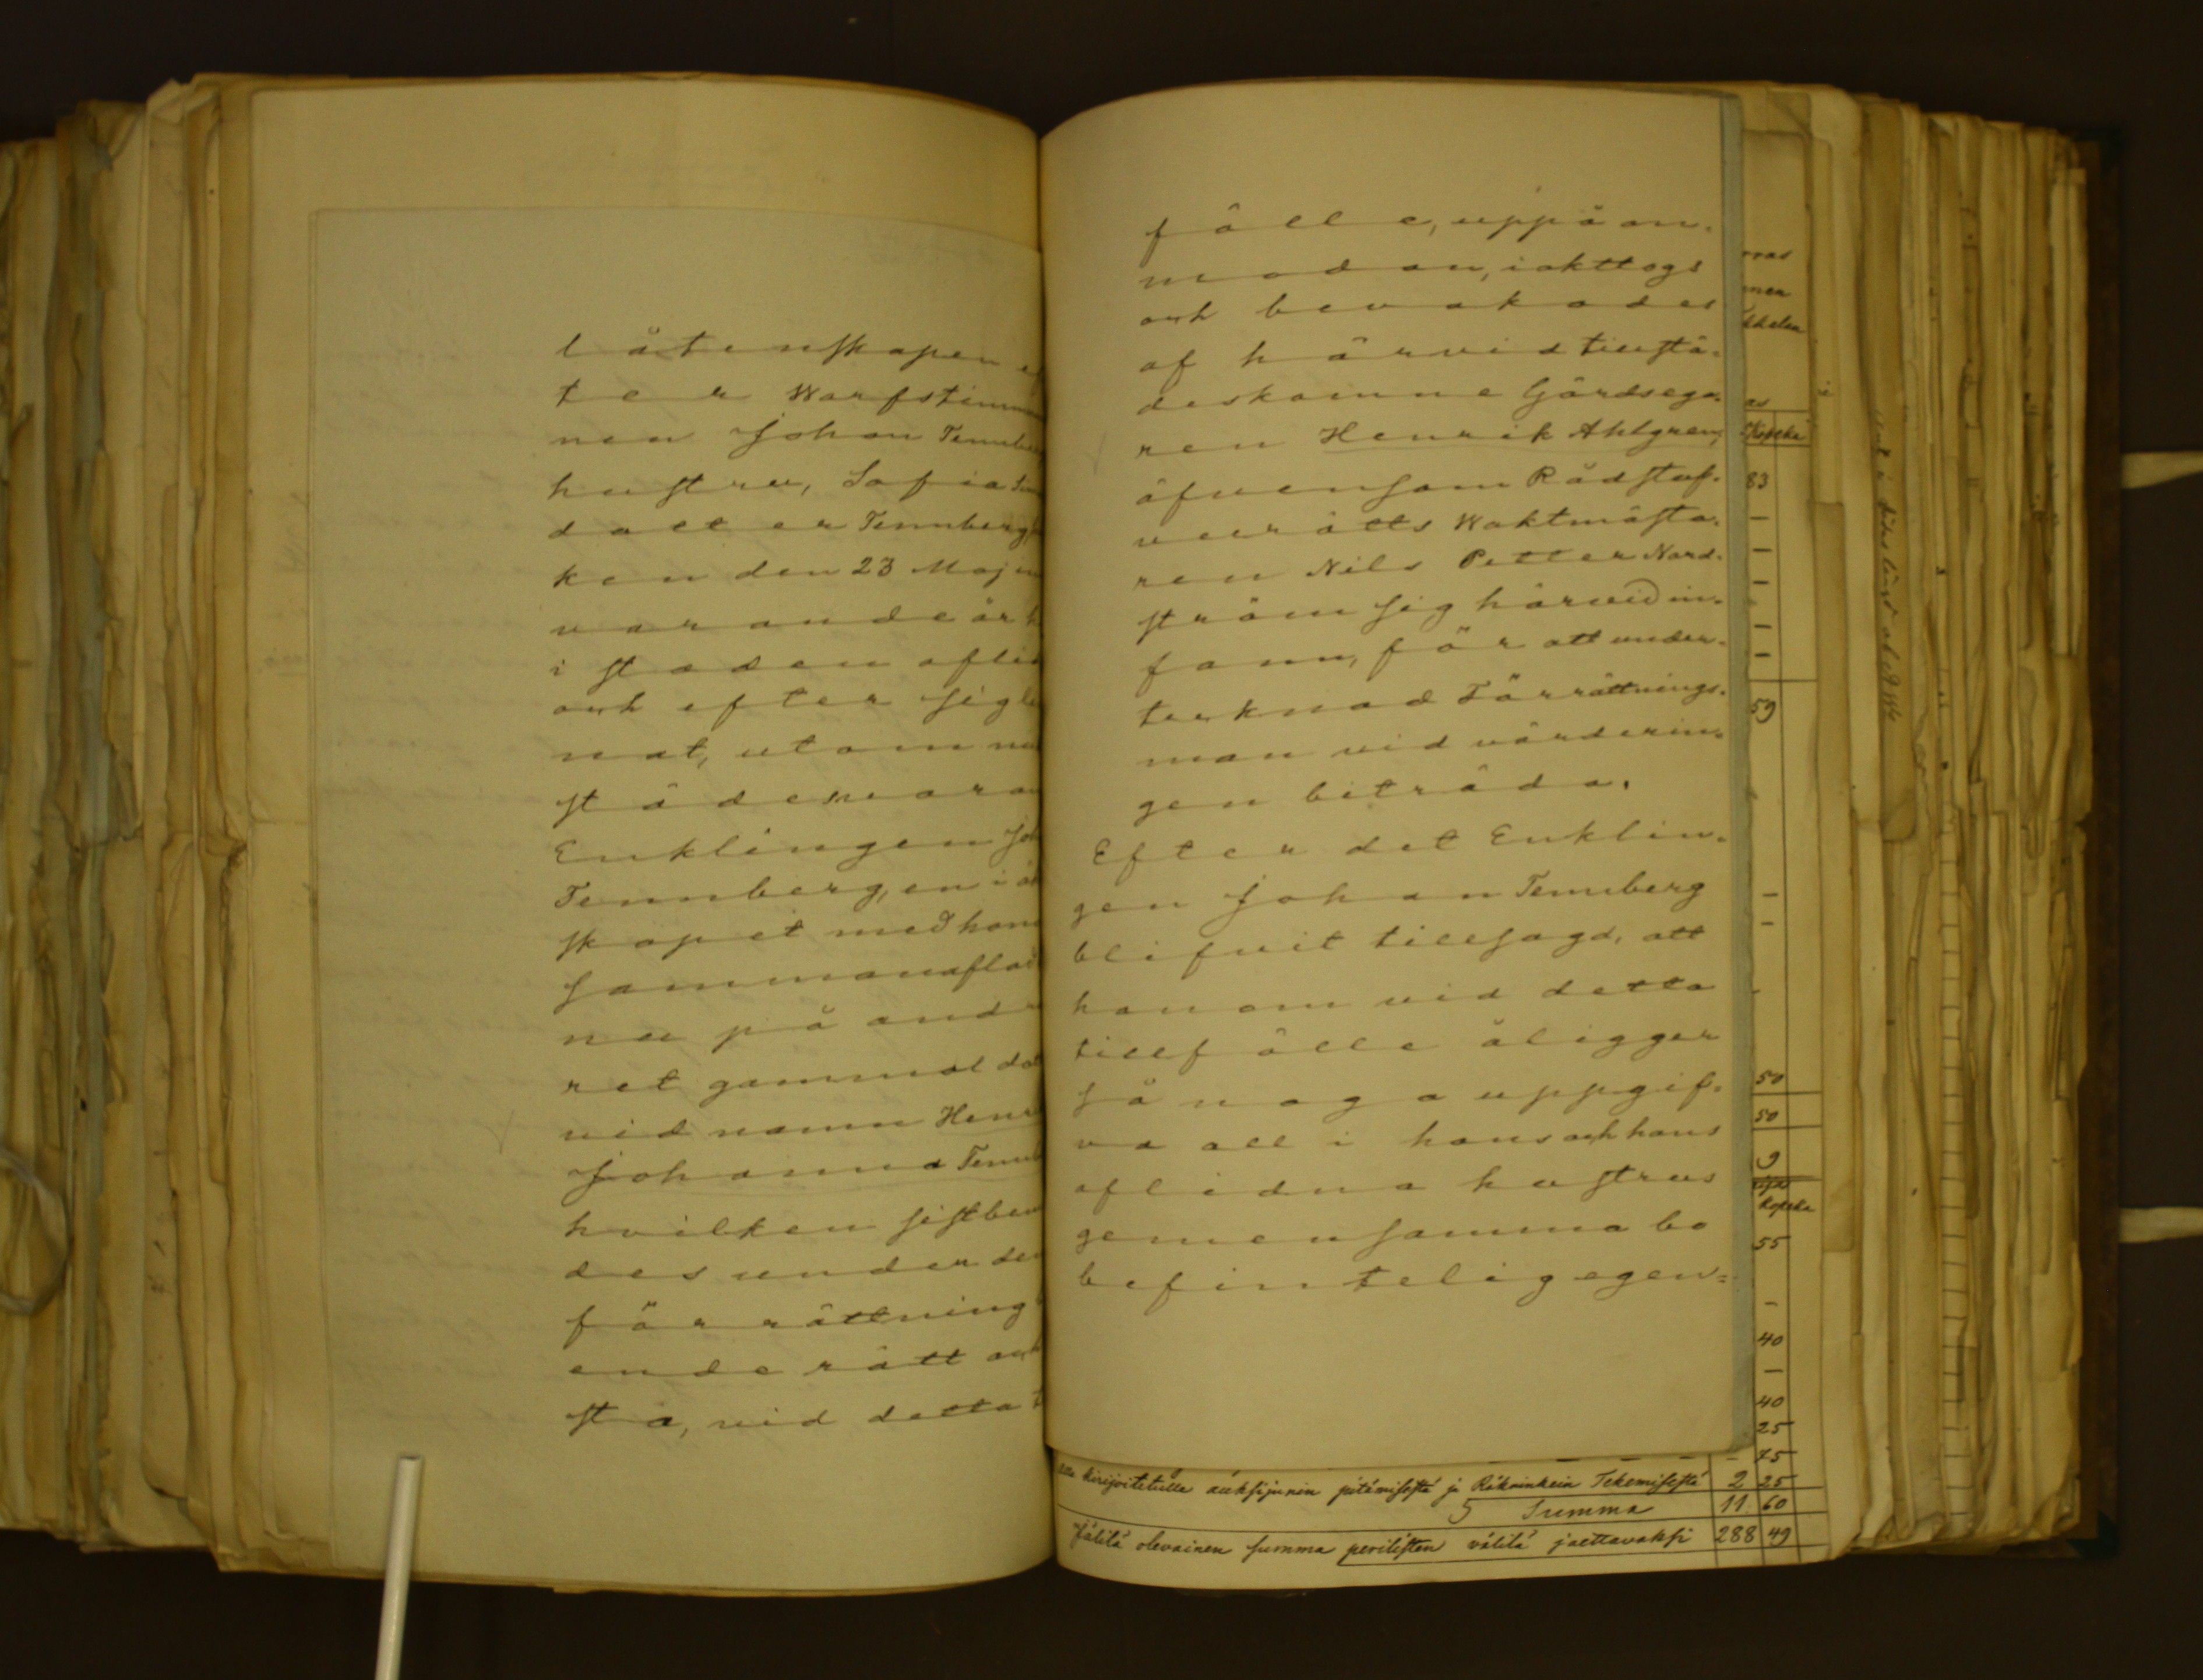 låtenskapen ef
ter Warfstimm
nen Johan Tennberg
hustru, Sofia
dotter Tennberg
ken den 23 Maj in
varande år h
i staden aflid
och efter sig le
nat, utom nu
städesvaran
Enklingen Joh
Tennberg, en i äk
skapet med hono
sammanaflad
nu på andr
ret gammal dot
vid namn Henr
Johanna Tennb
hvilken sistben
des under den
förrättning
ende rätt och
sta, vid detta t
fälle, uppå an-
modan, iakttogs
och bevakades
af härvid tillstä-
deskomne Gårdsega-
ren Henrik Ahlgren,
äfvensom Rådstuf-
vurätts Waktmästa-
ren Nils Petter Nord-
ström sig härvid in-
fann, för att under-
tecknad Förrättnings-
man vid värderin-
gen biträda.
Efter det Enklin-
gen Johan Tennberg
blifvit tillsagd, att
honom vid detta
tillfälle åligger
så noga uppgif-
va all i hans och hans
aflidna hustrus
gemensamma bo
befintelig egen=
Kopeka
83
59
50
50
9
Kopeka
55
40
40
25
75
kirijoitetulle auksijunin pitämisestä ja Räkninkein Tekemisestä 2 25
5 Summa 11. 60
Jälilä olevainen summa perilisten välilä jaettavaksi 288 49